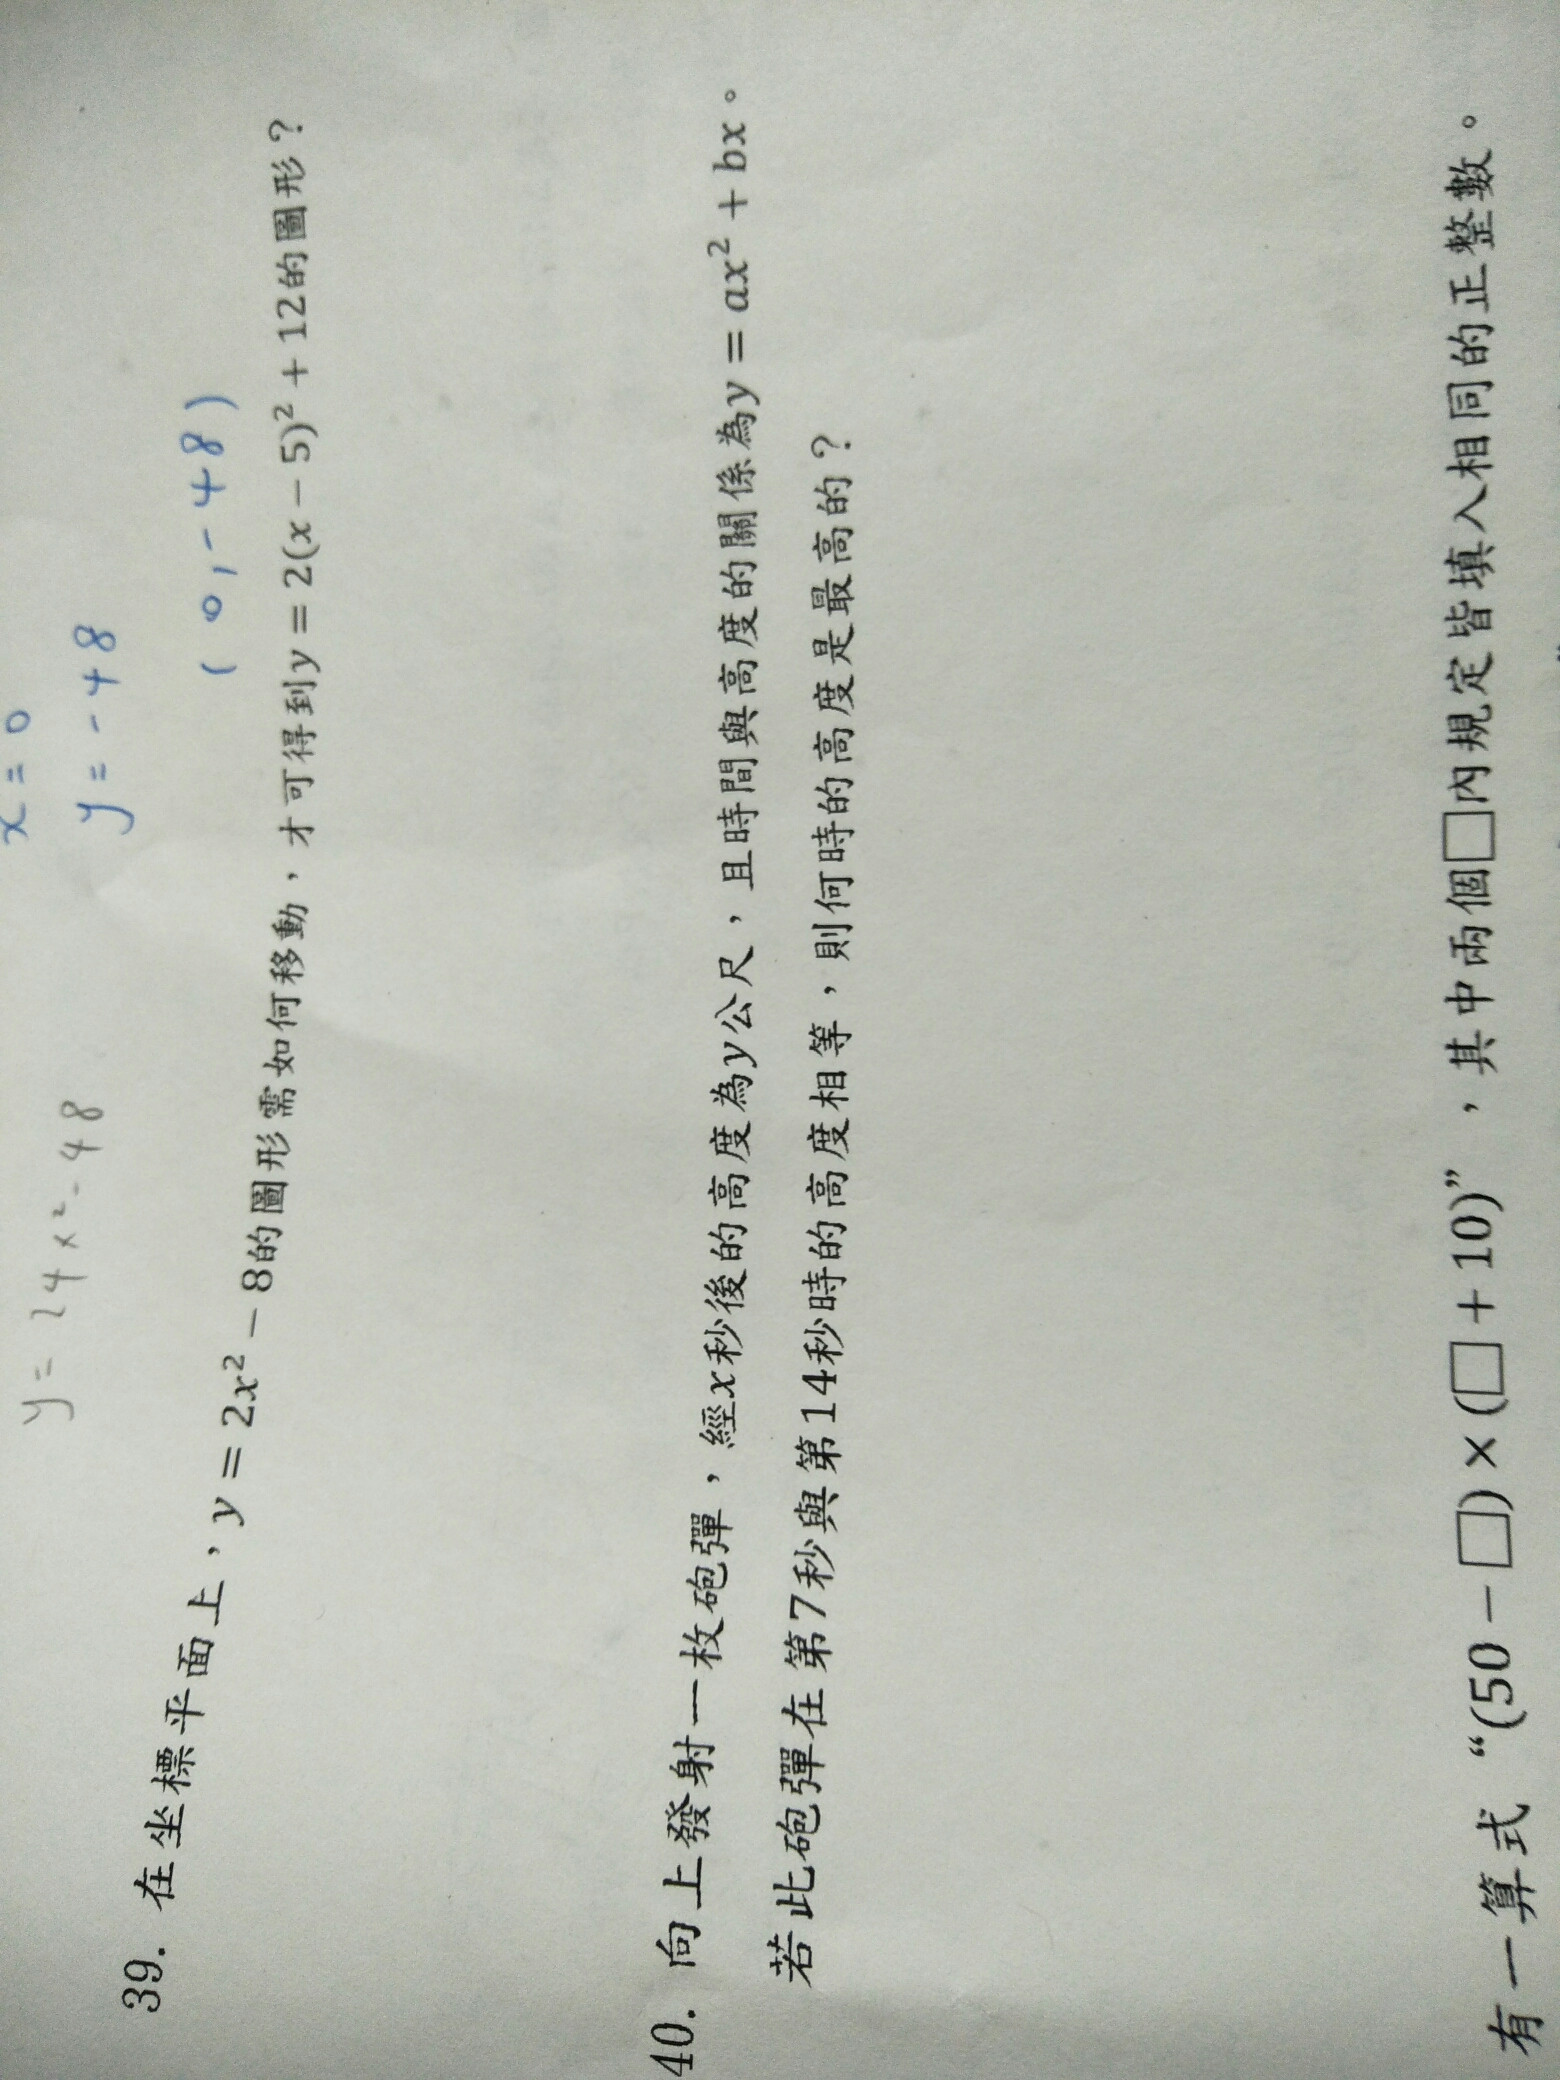 x = 0
y = 24x² - 48
y = - 48
( 0 , - 48 )
39. 在坐標平面上，y = 2x² − 8的圖形需如何移動，才可得到y = 2(x − 5)² + 12的圖形？
40. 向上發射一枚砲彈，經x秒後的高度為y公尺，且時間與高度的關係為y = ax² + bx。
若此砲彈在第7秒與第14秒時的高度相等，則何時的高度是最高的？
有一算式“(50 − □) × (□ + 10)”，其中兩個□內規定皆填入相同的正整數。